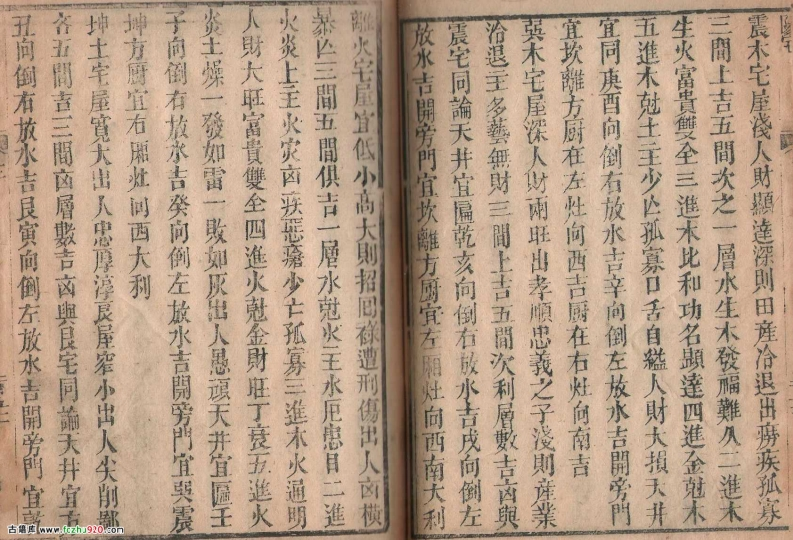 震木宅屋淺人財顯達深則田産冷退出癆疾孤寡
三間上吉五間次之一層水生木發福難久二進木
生火富貴雙全三進木比和功名顯達四進金尅木
五進木尅土主少亡孤寡口舌自縊人財大損天井
宜同庚酉向倒右放水吉辛向倒左放水吉開旁門
宜坎離方厨在左灶向西吉厨在右灶向南吉
巽木宅屋深人財兩旺出孝順忠義之子淺則産業
冷退主多藝無財三間上吉五間次利層數吉凶與
震宅同論天井宜匾乾亥向倒右放水吉戌向倒左
放水吉開旁門宜坎離方厨宜左厢灶向西南大利
離火宅屋宜低小高大則招回祿遭刑傷出人凶橫
暴亡三間五間俱吉一層水尅火主水厄患目二進
火炎上主火灾凶疾惡癆少亡孤寡三進木火通明
人財大旺富貴雙全四進火尅金財旺丁衰五進火
炎土燥一發如雷一敗如灰出人愚頑天井宜匾壬
子向倒右放水吉癸向倒左放水吉開旁門宜巽震
坤方厨宜右厢灶向西大利
坤土宅屋寬大出人忠厚淳良屋窄小出人尖削鄙
吝五間吉三間凶層數吉凶與艮宅同論天井宜方
丑向倒右放水吉艮寅向倒左放水吉開旁門宜
古籍库 www.fczhu920.com